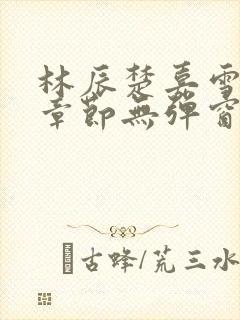 林辰楚嘉雪
章節無彈窗
古蜂/荒三水